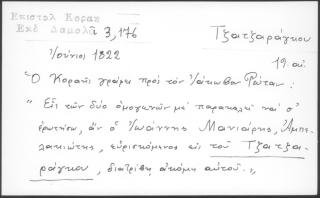 Επιστολ Κοραη
Εκδ Δαμαλᾶ 3,176
Τζατζαράγκου
Ἰούνιος 1822
19 αἰ.
Ὁ Κοραῆς γράφει πρὸς τὸν Ἰάκωβον Ρώταν:
"Εἷς τῶν δύο ὁμογενῶν μὲ παρακαλεῖ νὰ σ'
ἐρωτήσω, ἂν ὁ Ἰωάννης Μανιάρης, Ἀμπε-
λακιώτης, εὑρισκόμενος εἰς τοῦ Τζατζα-
ράγκου, διατρίβῃ ἀκόμη αὐτοῦ.„